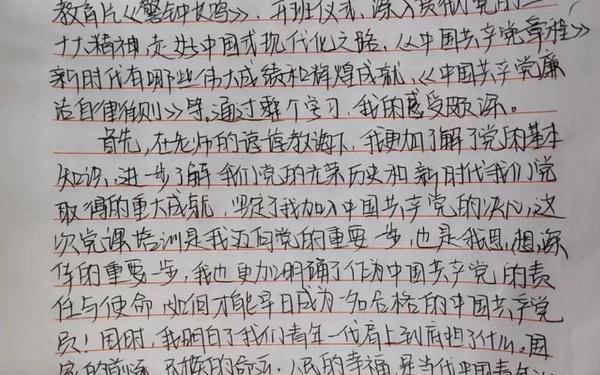 教育片《警钟长鸣》、开班仪式、深入贯彻党的二
十大精神走好中国式现代化之路、《中国共产党章程》
新时代有哪些伟大成绩和辉煌成就、《中国共产党廉
洁自律准则》等,通过整个学习,我的感受颇深。
首先,在老师的谆谆教诲下,我更加了解了党的基本
知识,进一步了解我们党的光荣历史和新时代我们党
取得的重大成就,坚定了我加入中国共产党的决心,这
次党课培训是我迈向党的重要一步,也是我思想深
作的重要一步,我也更加明确了作为中国共产党的责
任与使命,如何才能早日成为一名合格的中国共产党
员!同时,我明白了我们青年一代肩上到底担了什么,国
家的前途、民族的命运、人民的幸福,是当代中国青年